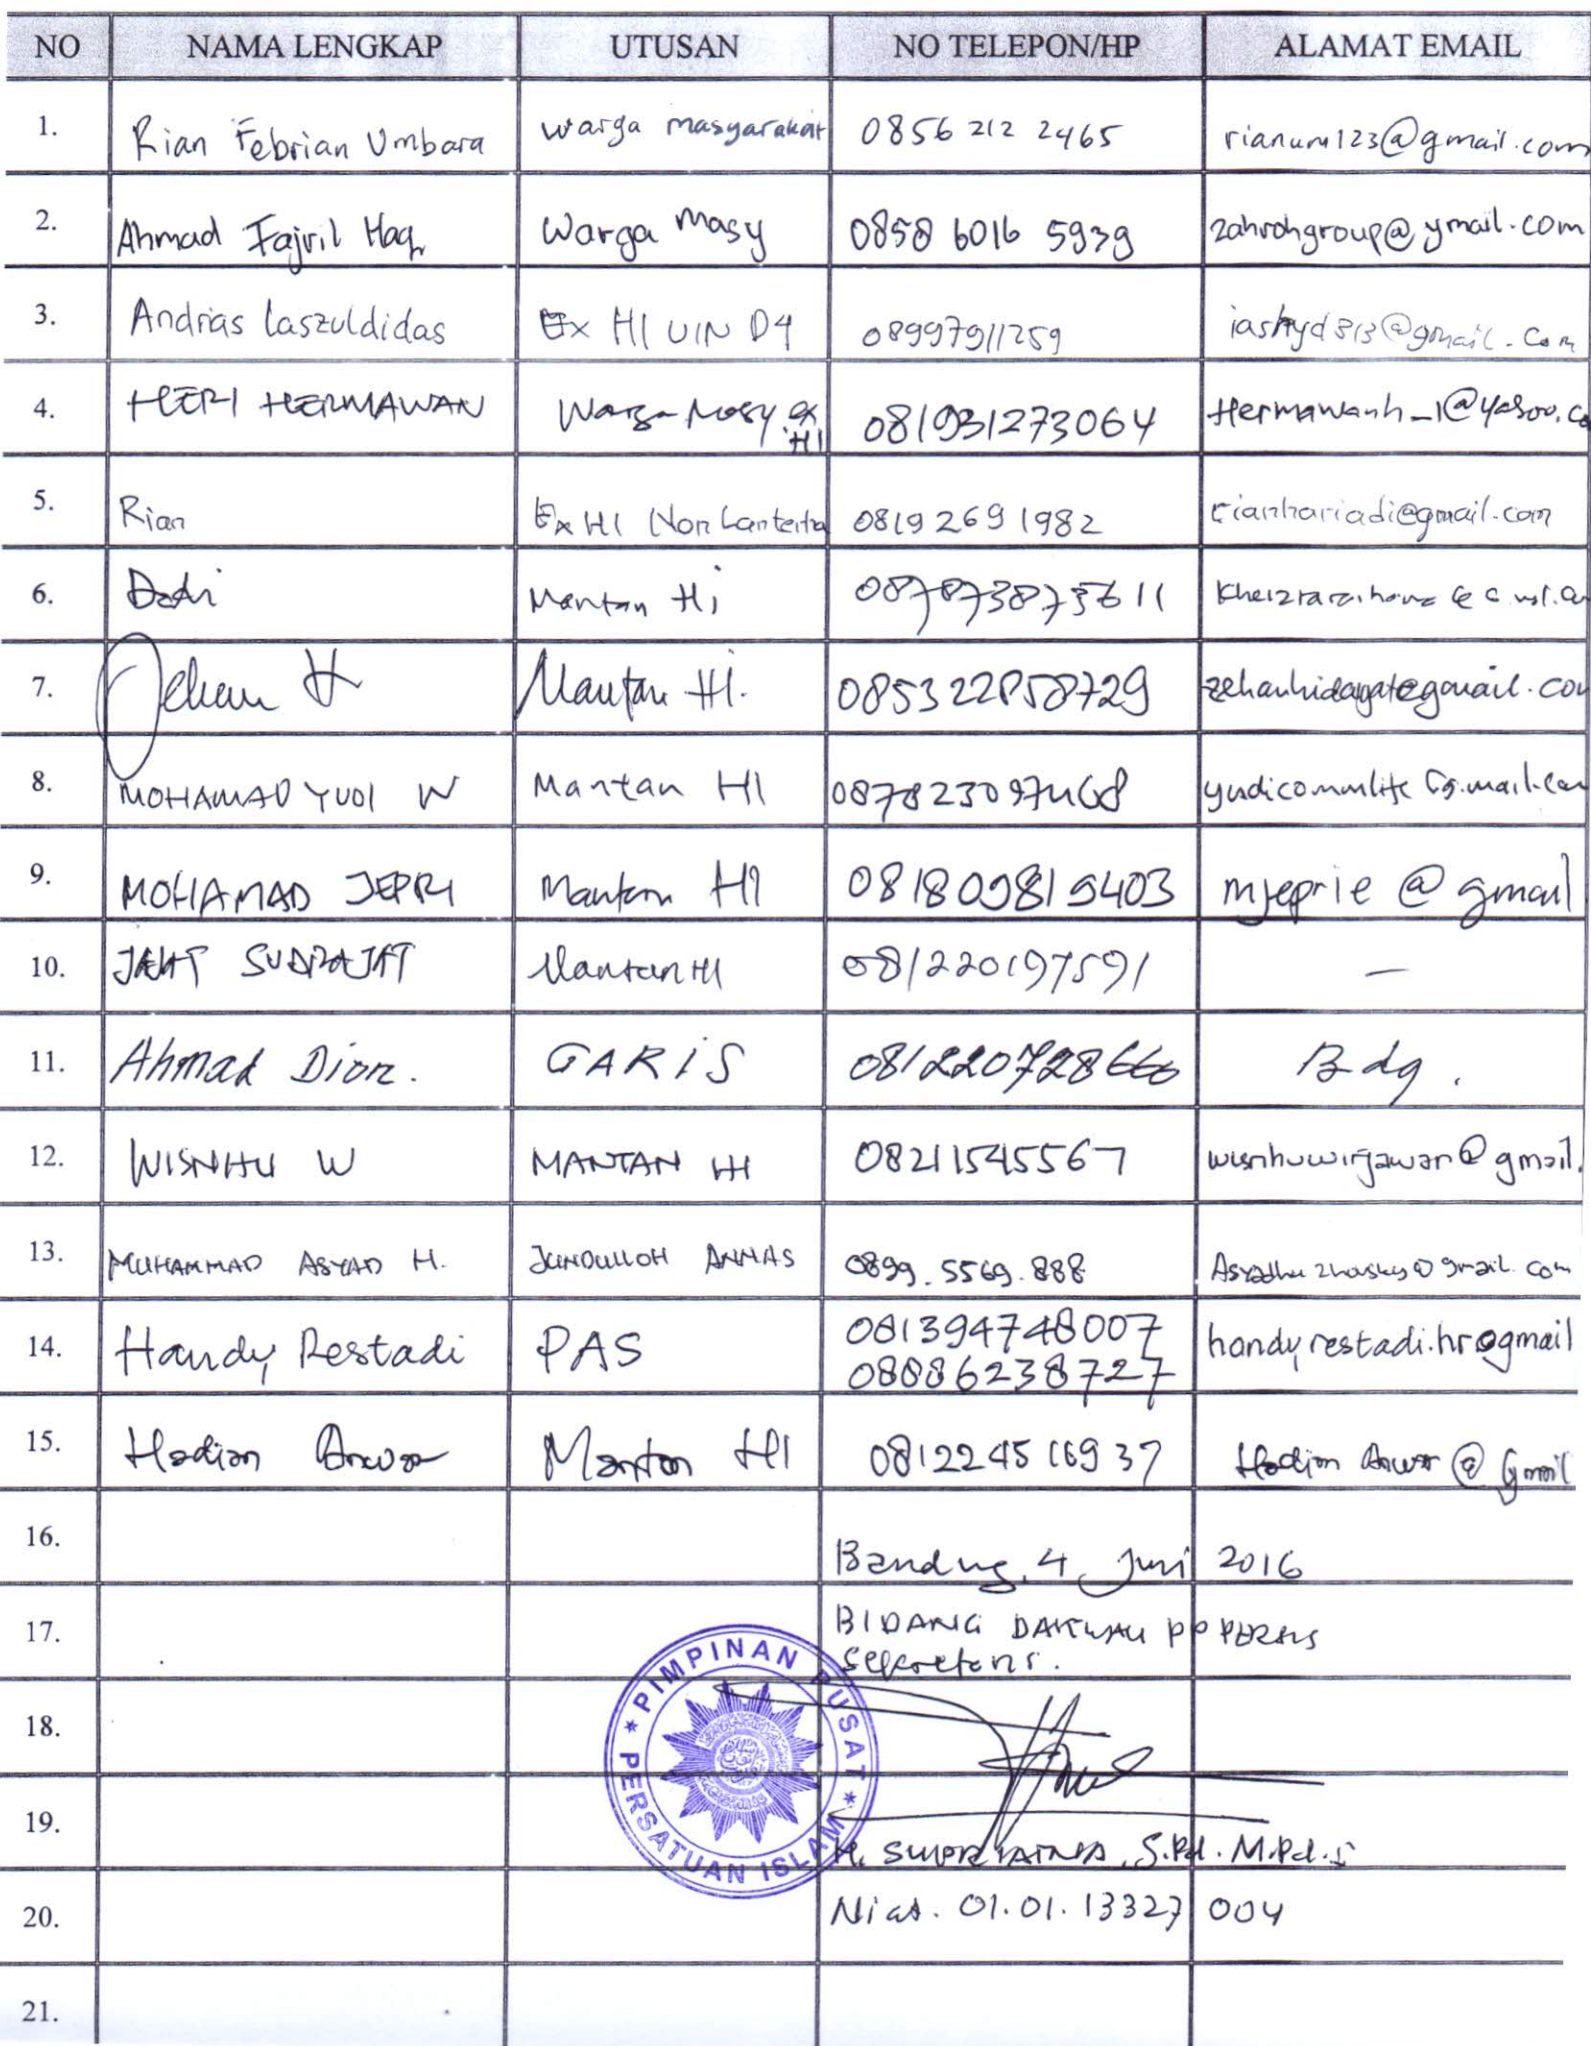 NO NAMA LENGKAP UTUSAN NO TELEPON/HP ALAMAT EMAIL
1. Rian Febrian Umbara Warga masyarakat 0856 212 2465 rianum123@gmail.com
2. Ahmad Fajril Haq Warga Masy 0858 6016 5939 zahrohgroup@ymail.com
3. Andrias Laszuldidas Ex HI UIN D4 08997911259
4. HERI HERMAWAN Warga Masy ex HI 081931273064 Hermawanh_1@yahoo.co
5. Rian Ex HI Non 0819 269 1982 rianhariadi@gmail.com
6. Dadi Mantan Hi
7. Jehan H Mantan HI. 085322858729 zehanhidayat@gmail.com
8. MOHAMAD YUDI W Mantan HI 087823097468
9. MOHAMAD JEPRI Mantan HI 081809819403 mjeprie @ gmail
10. SUDRAJAT Mantan HI 081220197591 —
11. Ahmad Dion. GARIS 081220728666 Bdg.
12. WISNHU W MANTAN HI 08211545567 wisnhuwirjawan@gmail.
13. MUHAMMAD ASYAD H. JUNDULLOH ANNAS 0899.5569.888
14. Handy Restadi PAS 081394748007 handyrestadi.hr@gmail
08886238727
15. Hadian Anwar Mantan HI 0812245 16937 Hadian Anwar @ Gmail
16. Bandung, 4 Juni 2016
17. BIDANG DAKWAH PP PERSIS
Sekretaris.
PIMPINAN PUSAT
PERSATUAN ISLAM
18.
19.
H. SUPRIATNA, S.Pd. M.Pd.I
20. Niat. 01.01.13327 004
21.